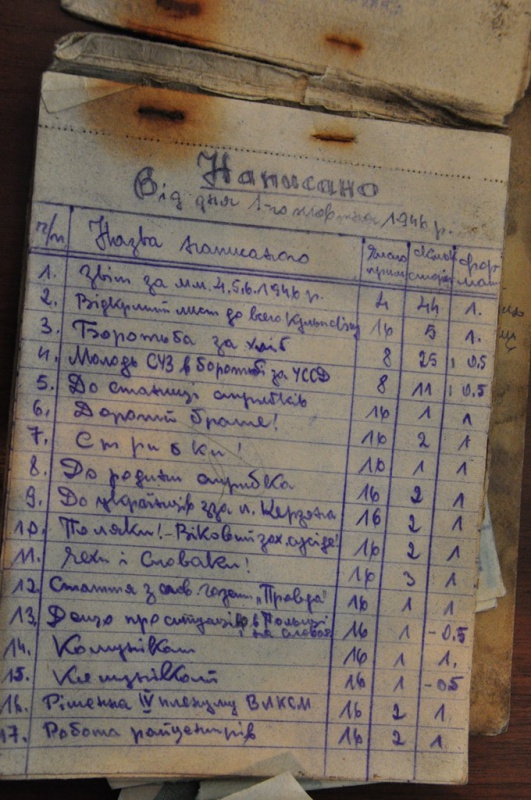 Написано
Від дня 1-го жовтня 1946 р.
ч/п Назва написаного прим. сторін фор мат
1. Звіт за м.м. 4.5.6. 1946 р. 4 44 1.
2. Відкритий лист до всего 16 5 1.
3. Боротьба за хліб 8 25 0,5
4. Молодь СУЗ в боротьбі за УССД 8 11 0,5
5. До станиці стрибків 16 1 1
6. Дорогий брате! 16 2 1
7. Стрибки! 16 1 1
8. До родини стрибка 16 2 1
9. До українців з-за л. Керзона 16 2 1
10. Поляки! - Віковий зах. сусіде! 16 2 1
11. Чехи і Словаки! 16 3 1
12. Стаття з слов. газети "Правда" 16 1 1
13. Дещо про ситуацію в Польщі 16 1 - 0.5
і на Словач
14. Комунікат 16 1 1.
15. Комунікат 16 1 - 05
16. Рішення IV пленуму ВЛКСМ 16 2 1
17. Робота райцентрів 16 2 1